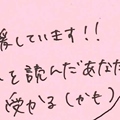 援しています!!
を読んだあなた
受かる(かも)